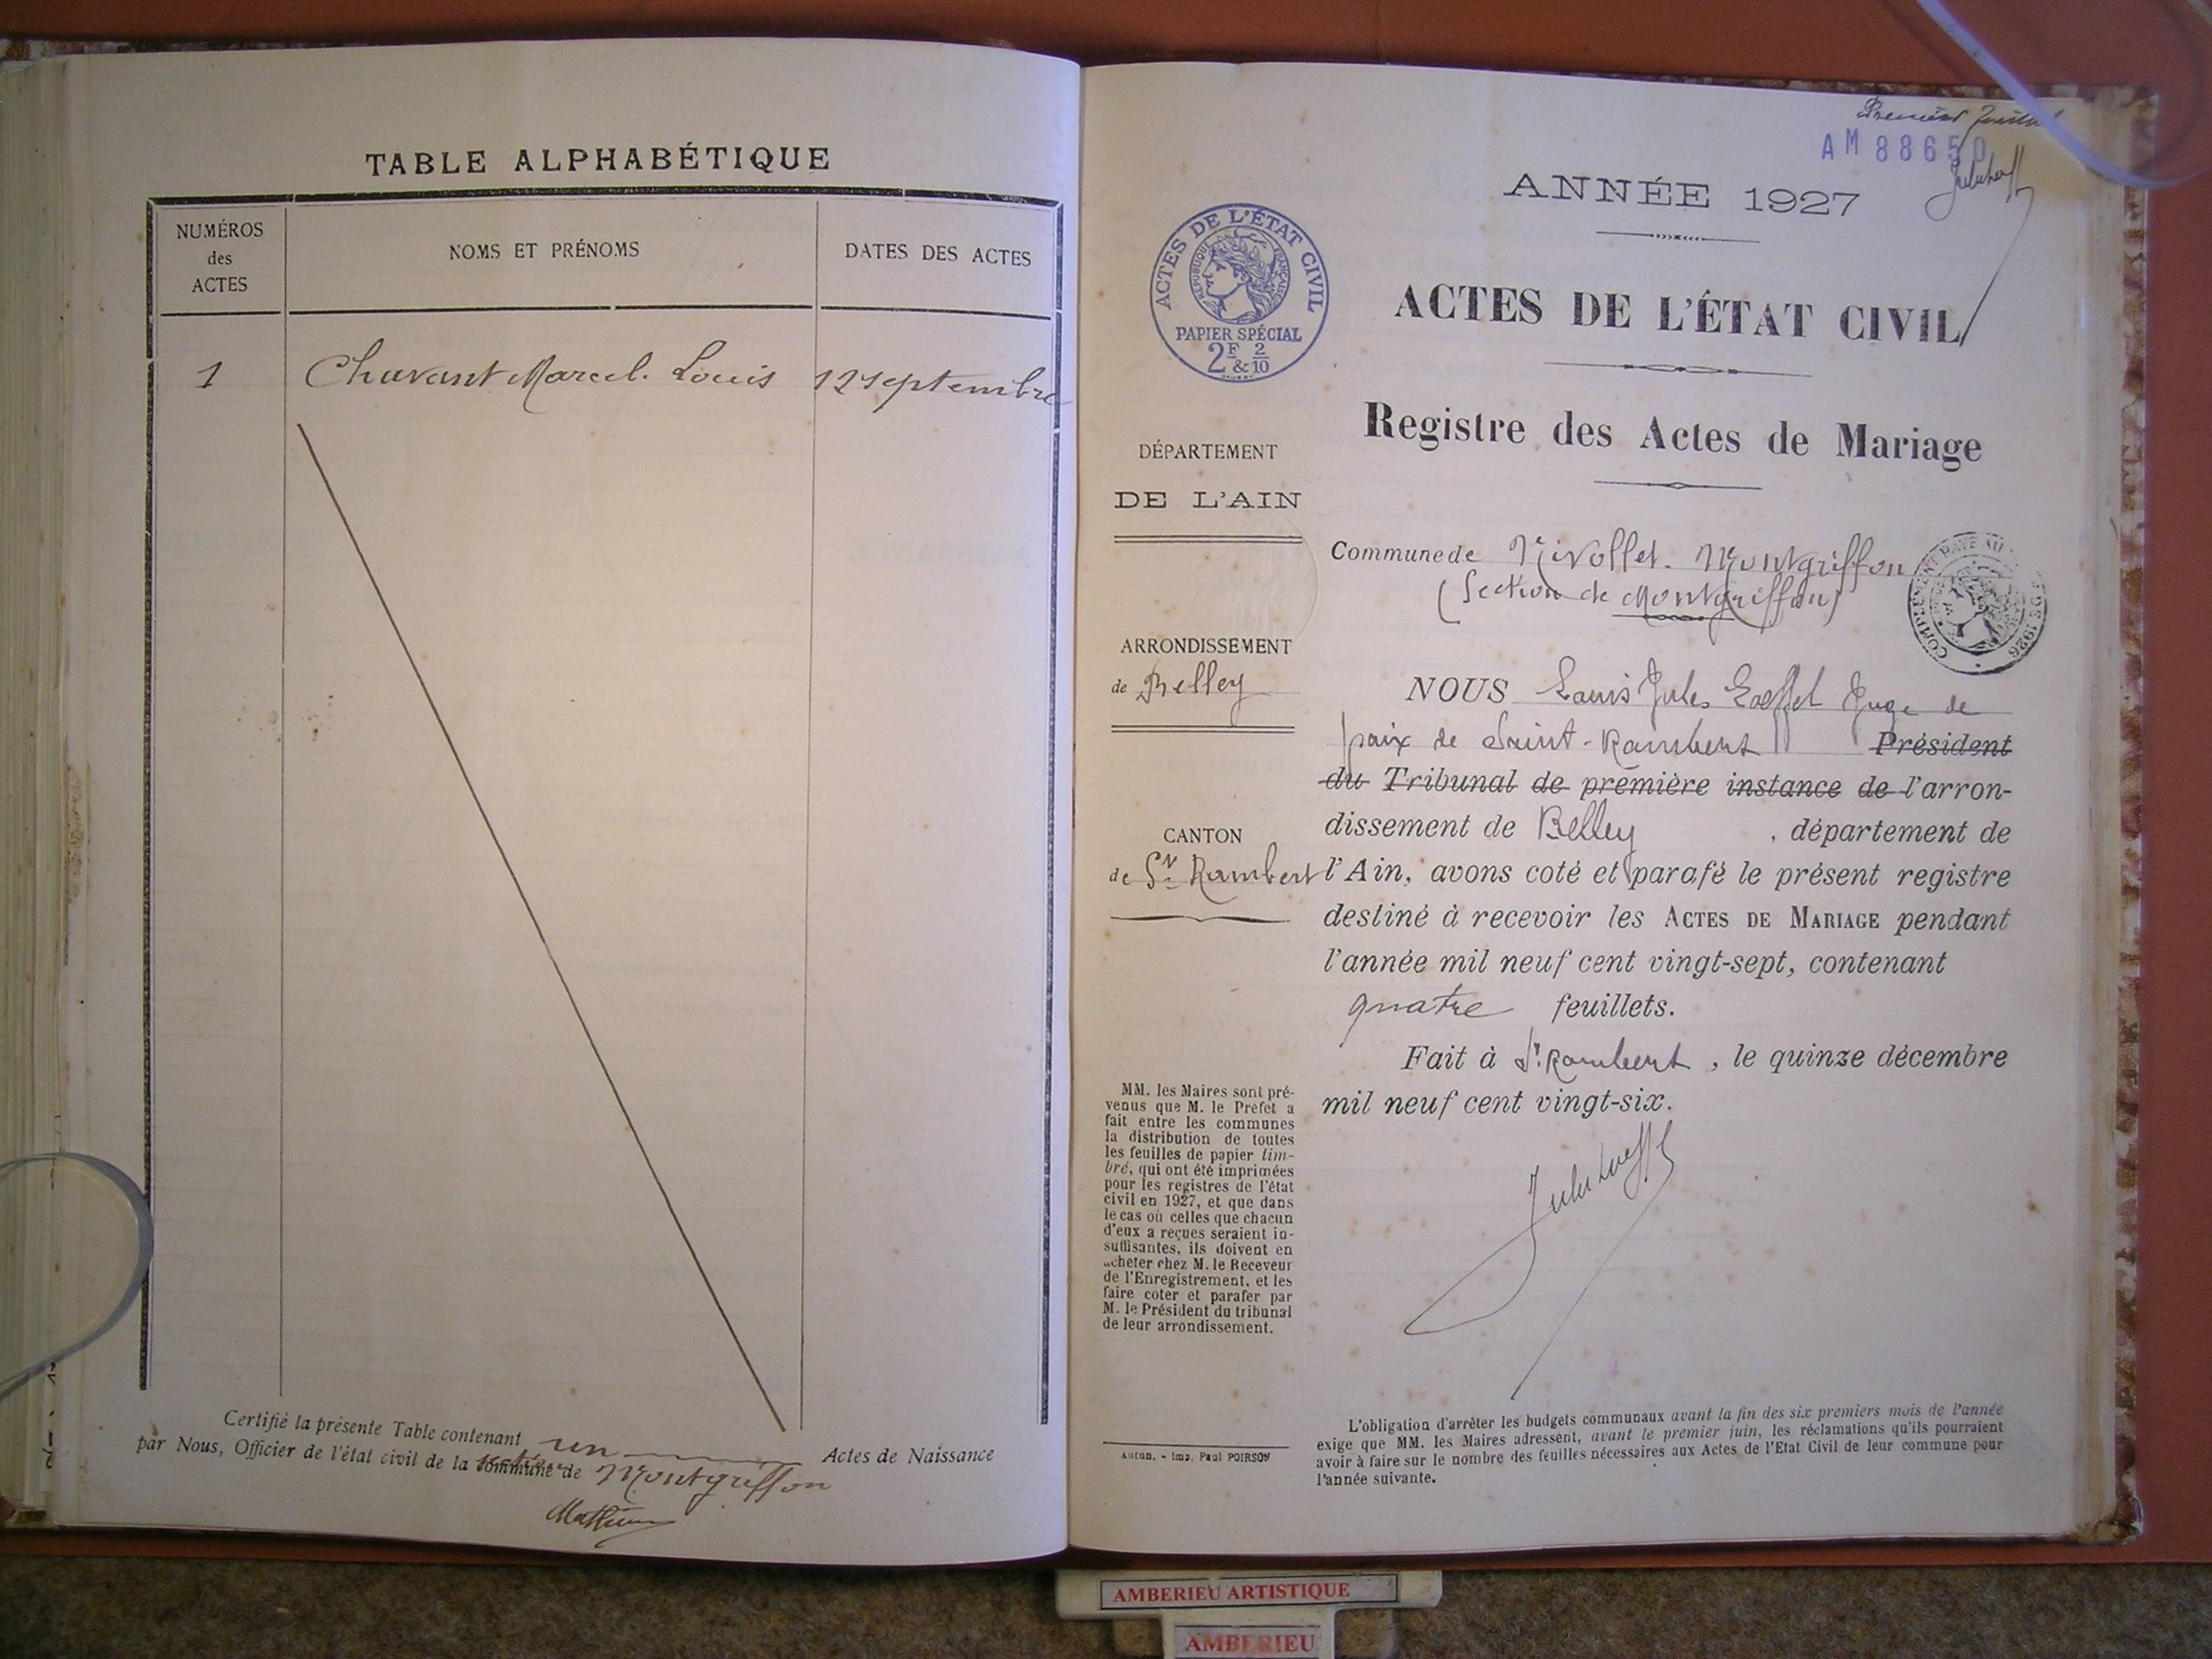 TABLE ALPHABÉTIQUE
NUMÉROS
des
ACTES
NOMS ET PRÉNOMS
DATES DES ACTES
1 Chavant Marcel. Louis 12 septembre
Certifié la présente Table contenant un Actes de Naissance
par Nous, Officier de l'état civil de la commune de Montgriffon
section
Mathieu
Premier feuillet
AM 88650
ANNÉE 1927
ACTES DE L'ÉTAT CIVIL
RÉPUBLIQUE FRANÇAISE
PAPIER SPÉCIAL
2F & 2/10
ACTES DE L'ÉTAT CIVIL
Registre des Actes de Mariage
DÉPARTEMENT
DE L'AIN
ARRONDISSEMENT
de Belley
CANTON
de St Rambert
Commune de Nivollet. Montgriffon
(Section de Montgriffon)
NOUS Louis Jules Loeffel Juge de
paix de Saint-Rambert Président
du Tribunal de première instance de l'arron-
dissement de Belley, département de
l'Ain, avons coté et parafé le présent registre
destiné à recevoir les ACTES DE MARIAGE pendant
l'année mil neuf cent vingt-sept, contenant
quatre feuillets.
Fait à St. Rambert, le quinze décembre
mil neuf cent vingt-six.
MM. les Maires sont pré-
venus que M. le Prefet a
fait entre les communes
la distribution de toutes
les feuilles de papier tim-
bré, qui ont été imprimées
pour les registres de l'état
civil en 1927, et que dans
le cas où celles que chacun
d'eux a reçues seraient in-
suffisantes, ils doivent en
acheter chez M. le Receveur
de l'Enregistrement, et les
faire coter et parafer par
M. le Président du tribunal
de leur arrondissement.
Autun. - Imp. Paul POIRSON
L'obligation d'arrêter les budgets communaux avant la fin des six premiers mois de l'année
exige que MM. les Maires adressent, avant le premier juin, les réclamations qu'ils pourraient
avoir à faire sur le nombre des feuilles nécessaires aux Actes de l'Etat Civil de leur commune pour
l'année suivante.
AMBERIEU ARTISTIQUE
AMBERIEU